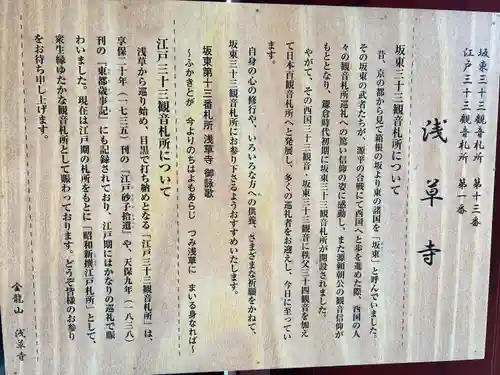 坂東三十三観音札所　第十三番
江戸三十三観音札所　第一番
浅草寺
坂東三十三観音札所について
昔、京の都から見て箱根の坂より東の諸国を「坂東」と呼んでいました。
その坂東の武者たちが、源平の合戦にて西国へと歩を進めた際、西国の人
々の観音札所巡礼への篤い信仰の姿に感動し、また源頼朝公の観音信仰が
もととなり、鎌倉時代初期に坂東三十三観音札所が開設されました。
やがて、その西国三十三観音・坂東三十三観音に秩父三十四観音を加え
て日本百観音札所へと発展し、多くの巡礼者をお迎えし、今日に至ってい
ます。
自身の心の修行や、いろいろな方への供養、さまざまな祈願をかねて、
坂東三十三観音札所にお参り下さるようおすすめいたします。
坂東第十三番札所 浅草寺 御詠歌
〜ふかきとが　今よりのちはよもあらじ　つみ浅草に　まいる身なれば〜
江戸三十三観音札所について
浅草から巡り始め、目黒で打ち納めとなる「江戸三十三観音札所」は、
享保二十年（一七三五）刊の『江戸砂子拾遺』や、天保九年（一八三八）
刊の『東都歳事記』にも記録されており、江戸期にはかなりの巡礼で賑
わいました。現在は江戸期の札所をもとに「昭和新撰江戸札所」として、
衆生縁ゆたかな観音札所として賑わっております。どうぞ皆様のお参り
をお待ち申し上げます。
金龍山　浅草寺